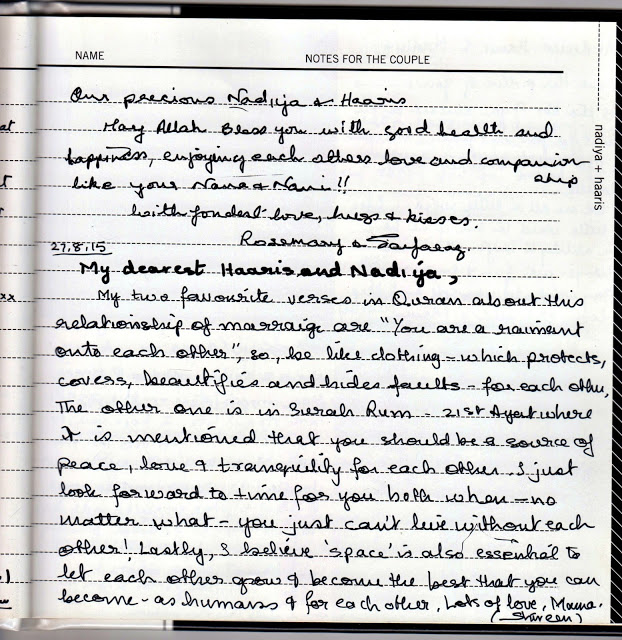 NAME NOTES FOR THE COUPLE
Our precious Nadiya & Haaris
May Allah Bless you with good health and
happiness, enjoying each others love and companion
ship
like your Nana & Nani!!
with fondest love, hugs & kisses.
Rosemary & Sarfaraz.
27.8.15
My dearest Haaris and Nadiya,
My two favourite verses in Quran about this
relationship of marraige are "You are a raiment
onto each other", so, be like clothing - which protects,
covers, beautifies and hides faults - for each other,
The other one is in Surah Rum - 21st Ayat where
it is mentioned that you should be a source of
peace, love & tranquility for each other. I just
look forward to time for you both when - no
matter what - you just can't live without each
other! Lastly, I believe 'space' is also essential to
let each other grow & become the best that you can
become - as humans & for each other. Lots of love, Mama.
(Shireen)
nadiya + haaris
at
xx